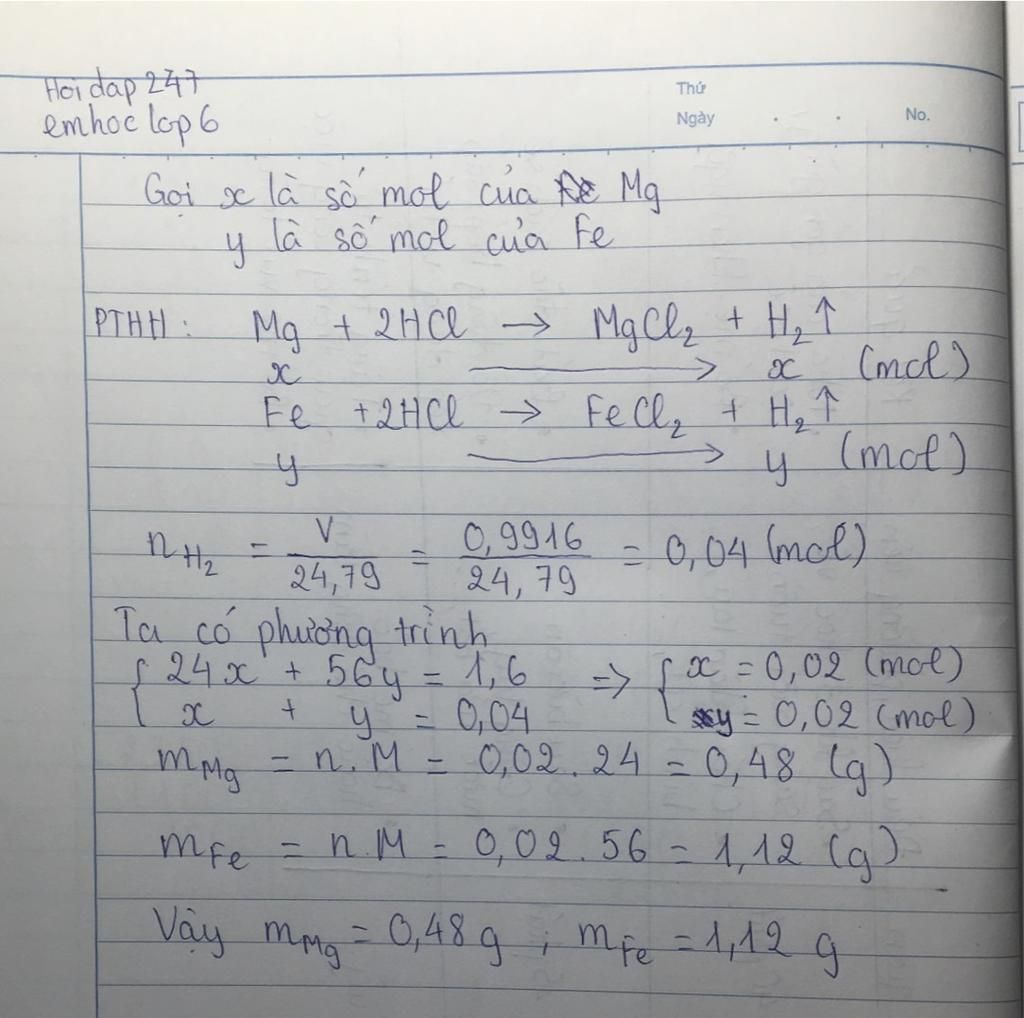 Hoi dap 247
emhoc lop 6
Thứ
Ngày . . No.
Gọi x là số mol của Mg
y là số mol của Fe
PTHH: Mg + 2HCl → MgCl₂ + H₂↑
x → x (mol)
Fe + 2HCl → FeCl₂ + H₂↑
y → y (mol)
n_H₂ = V/24,79 = 0,9916/24,79 = 0,04 (mol)
Ta có phương trình
{ 24x + 56y = 1,6 => { x = 0,02 (mol)
x + y = 0,04 y = 0,02 (mol)
m_Mg = n.M = 0,02.24 = 0,48 (g)
m_Fe = n.M = 0,02.56 = 1,12 (g)
Vậy m_Mg = 0,48 g ; m_Fe = 1,12 g